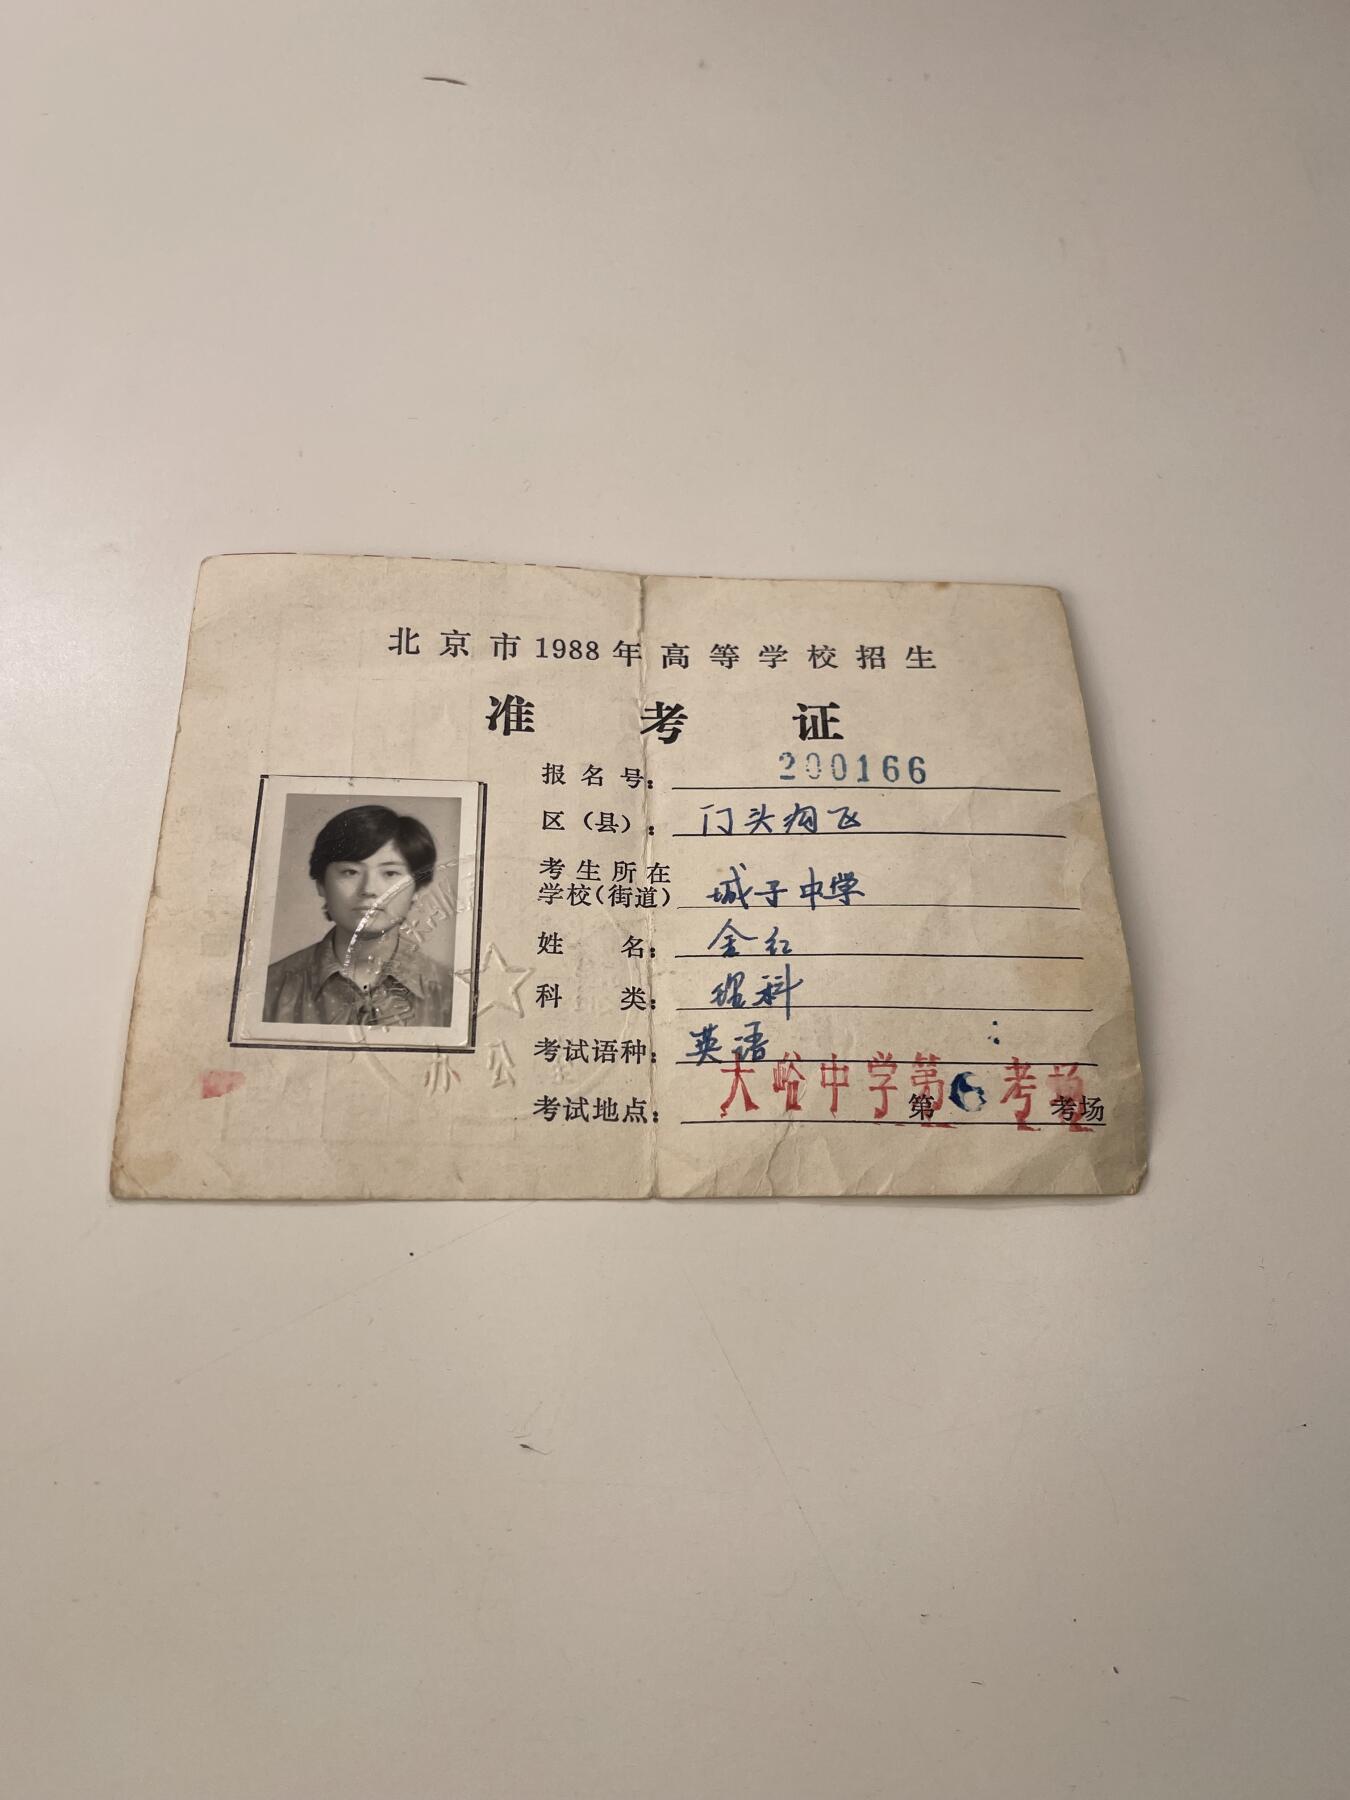 北京市1988年高等学校招生
准考证
报名号：200166
区（县）：门头沟区
考生所在学校(街道) 城子中学
姓名：金红
科类：理科
考试语种：英语
考试地点：大峪中学第 考场
第6考场